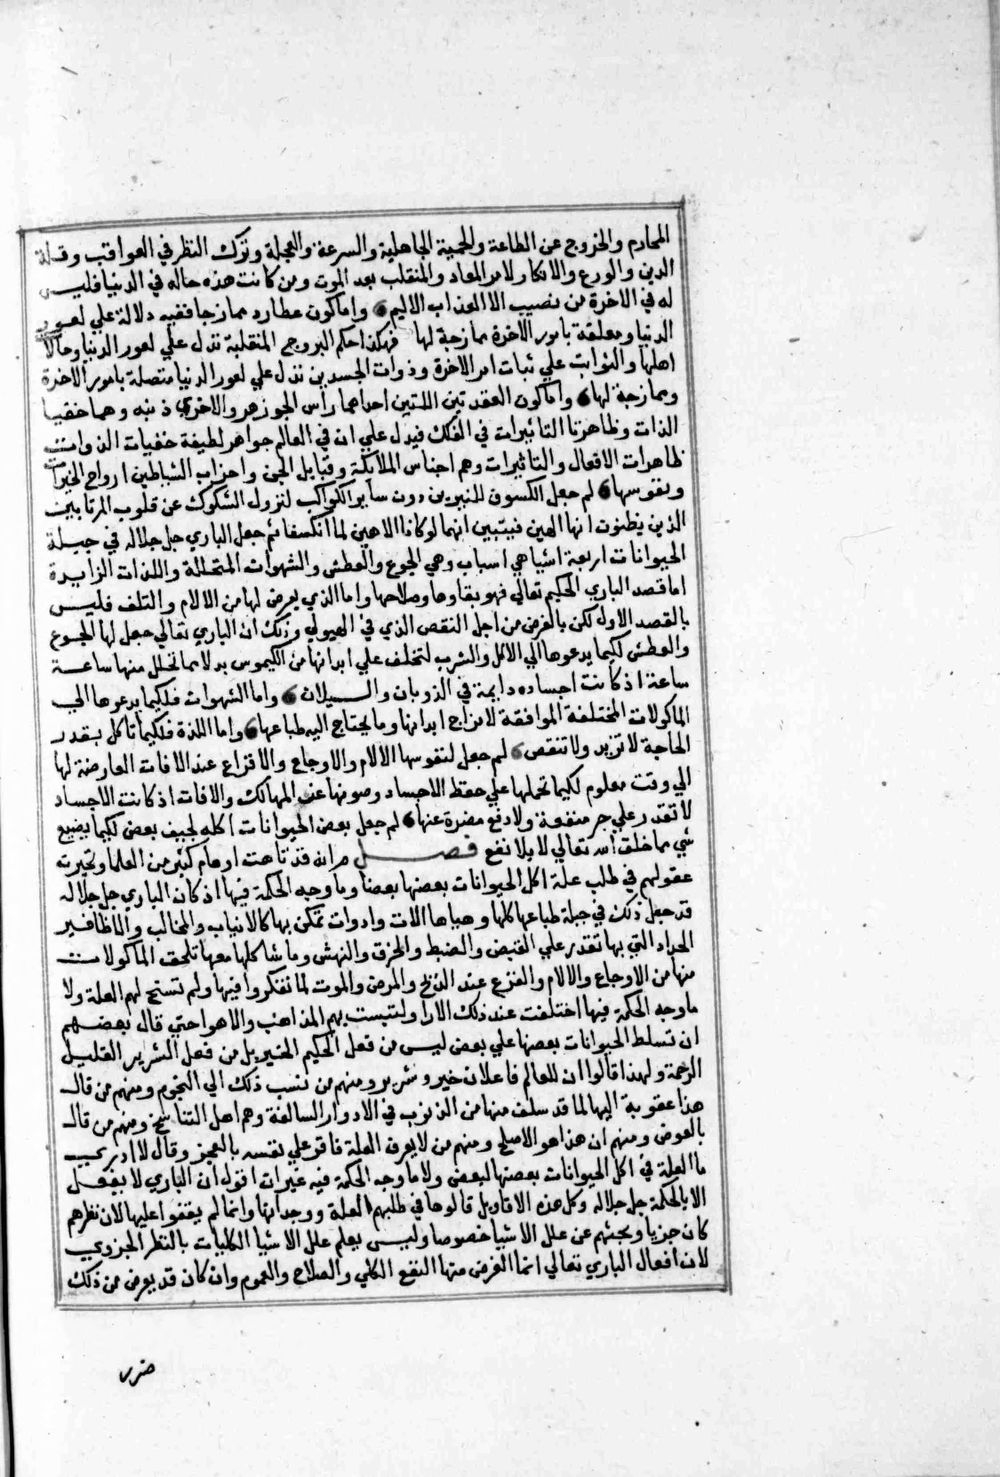 المحارم والخروج عن الطاعة والحمية الجاهلية والسرعة والعجلة وترك النظر في العواقب وقلة
الدين والورع والانكار لامر المعاد والمنقلب بعد الموت ومن كانت هذه حاله في الدنيا فليس
له في الاخرة من نصيب الا العذاب الاليم واما كون عطارد ممازجا ففيه دلالة علي امور
الدنيا ومعلقة بامور الاخرة ممازجة لها فهكذا حكم البروج المنقلبة تدل علي امور الدنيا وحالا
اهلها والثوابت علي ثبات امر الاخرة وذوات الجسدين تدل علي امور الدنيا متصلة بامور الاخرة
وممازجة لها واما كون العقدتين اللتين احداهما راس الجوزهر والاخري ذنبه وهما خفيا
الذات وظاهرتا التاثيرات في الفلك فيدل علي ان في العالم جواهر لطيفة خفيات الذوات
ظاهرات الافعال والتاثيرات وهم اجناس الملايكة وقبايل الجن واحزاب الشياطين ارواح الخيرات
ونفوسها لم جعل الكسوف للنيرين دون ساير الكواكب لتزول الشكوك عن قلوب المرتابين
الذين يظنون انها الهين فيتبين انهما لو كانا الاهين لما انكسفا ثم جعل الباري جل جلاله في جبلة
الحيوانات اربعة اشيا هي اسباب وهي الجوع والعطش والشهوات المتحللة واللذات الزايدة
اما قصد الباري الحكيم تعالي فهو بقاوها وصلاحها واما الذي يعرض لها من الالام والتلف فليس
بالقصد الاول لكن بالعرض من اجل النقص الذي في الهيولي وذلك ان الباري تعالي جعل لها الجوع
والعطش لكيما يدعوها الي الاكل والشرب لتخلف علي ابدانها من الكيموس بدلا مما تحلل منها ساعة
ساعة اذ كانت اجساده دايمة في الذوبان والسيلان واما الشهوات فلكيما يدعوها الي
الماكولات المختلفة الموافقة لامزاج ابدانها وما يحتاج اليه طباعها واما اللذة فلكيما تاكل بقدر
الحاجة لا تزيد ولا تنقص لم جعل لنفوسها الالام والاوجاع والافزاع عند الافات العارضة لها
الي وقت معلوم لكيما تحملها علي حفظ الاجساد وصونها عن المهالك والافات اذ كانت الاجساد
لا تقدر علي جر منفعة ولا دفع مضرة عنها لم جعل بعض الحيوانات اكله لجيف بعض لكيما يضيع
شي مما خلق الله تعالي لا بلا نفع فصل من انه قد تاهت اوهام كثير من العلما وتحيرت
عقولهم في طلب علة اكل الحيوانات بعضها بعضا وما وجه الحكمة فيها اذ كان الباري جل جلاله
قد جعل ذلك في جبلة طباعها كلها وهياها الات وادوات تمكن بها كالانياب والمخالب والاظافير
الحداد التي بها تقدر علي القبض والضبط والخرق والنهش وما شاكلها معها تلحق الماكولات
منها من الاوجاع والالام والفزع عند الذبح والمرض والموت لما تفكروا فيها ولم تسنح لهم العلة ولا
ما وجه الحكمة فيها اختلفت عند ذلك الارا والتبست بهم المذاهب والاهوا حتي قال بعضهم
ان تسلط الحيوانات بعضها علي بعض ليس من فعل الحكيم الخير بل من فعل الشرير القليل
الرحمة ولهذا قالوا ان للعالم فاعلان خير وشرير ومنهم من نسب ذلك الي النجوم ومنهم من قال
هذا عقوبة اليها لما قد سلف منها من الذنوب في الادوار السالفة وهم اهل التناسخ ومنهم من قال
بالعوض ومنهم ان هذا هو الاصلح ومنهم من لا يعرف العلة فاقر علي نفسه بالعجز وقال لا ادري
ما العلة في اكل الحيوانات بعضها لبعض ولا ما وجه الحكمة فيه غير ان اقول ان الباري لا يفعل
الا بالحكمة جل جلاله وكل هذه الاقاويل قالوها في طلبهم العلة ووجدانها وانما لم يقفوا عليها لان نظرهم
كان جزيا وبحثهم عن علل الاشيا خصوصا وليس يعلم علل الاشيا الكليات بالنظر الجزوي
لان افعال الباري تعالي انما الغرض منها النفع الكلي والصلاح والعموم وان كان قد يعرض من ذلك
ضرر